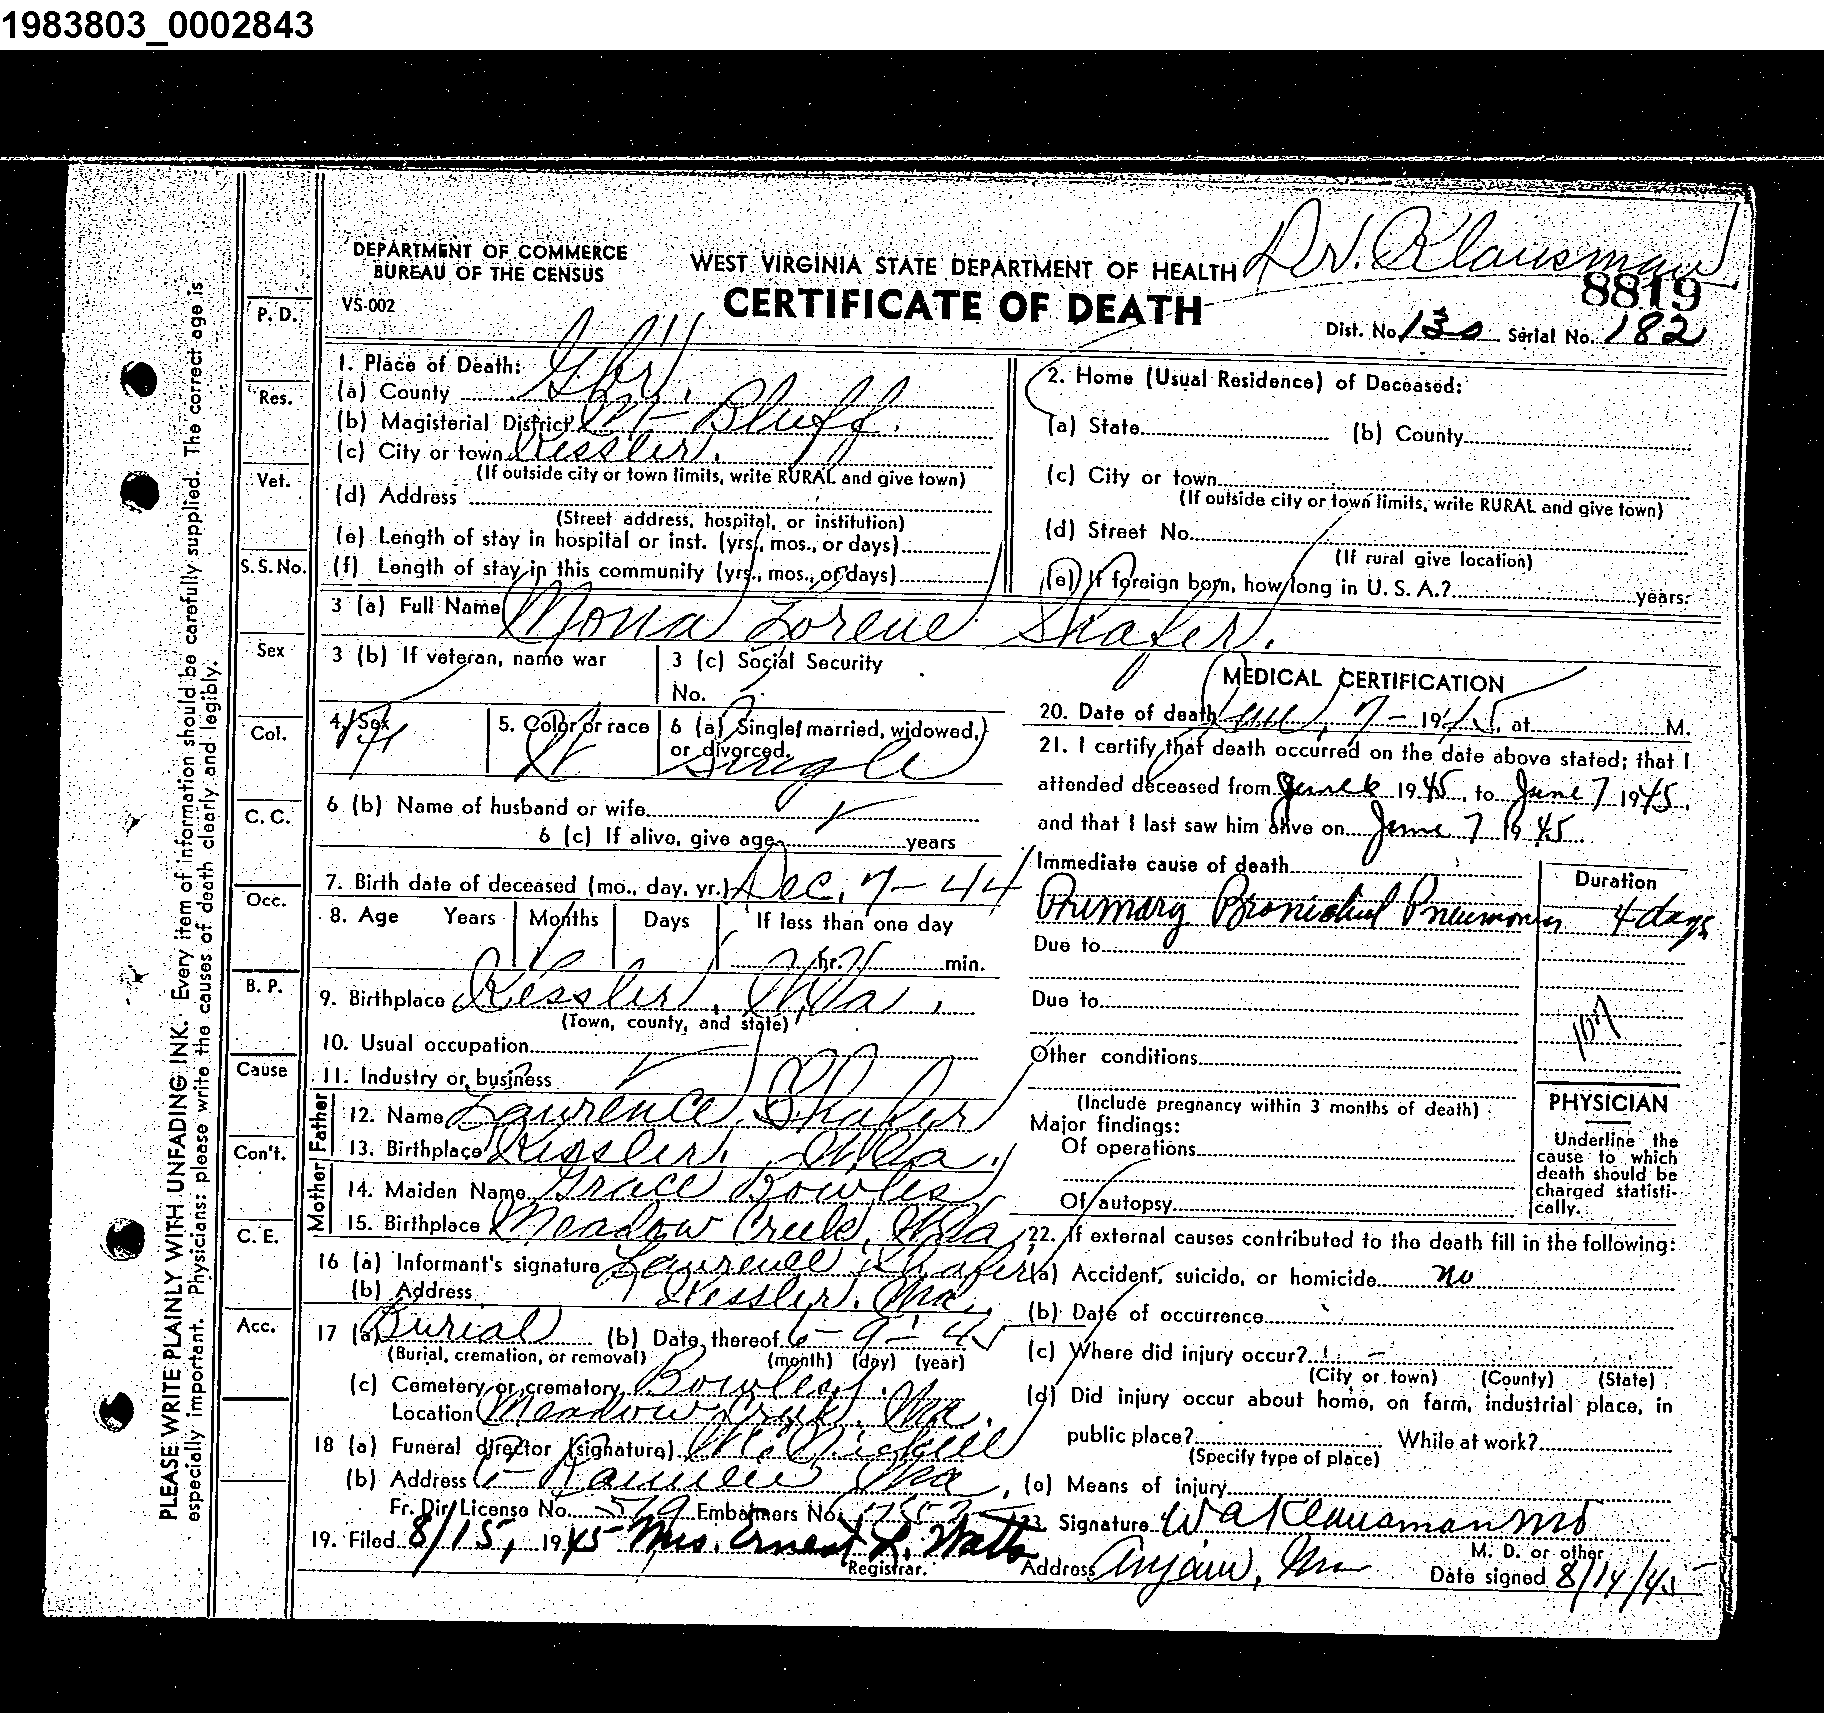 1983803_0002843
DEPARTMENT OF COMMERCE
BUREAU OF THE CENSUS
VS-002
WEST VIRGINIA STATE DEPARTMENT OF HEALTH
CERTIFICATE OF DEATH
Dr. Klausman
8819
Dist. No. 130 Serial No. 182
1. Place of Death:
(a) County Gbr.
(b) Magisterial District Mt Bluff.
(c) City or town Kessler.
(If outside city or town limits, write RURAL and give town)
(d) Address
(Street address, hospital, or institution)
(e) Length of stay in hospital or inst. (yrs., mos., or days)
(f) Length of stay in this community (yrs., mos., or days)
2. Home (Usual Residence) of Deceased:
(a) State (b) County
(c) City or town
(If outside city or town limits, write RURAL and give town)
(d) Street No.
(If rural give location)
(e) If foreign born, how long in U. S. A.? years.
3 (a) Full Name Mona Lorene Shafer.
3 (b) If veteran, name war
3 (c) Social Security
No.
4. Sex
5. Color or race W
6 (a) Single, married, widowed,
or divorced. Single
6 (b) Name of husband or wife
6 (c) If alive, give age years
7. Birth date of deceased (mo., day, yr.) Dec. 7-44
8. Age Years Months Days If less than one day
hr. min.
9. Birthplace Kessler, W.Va.
(Town, county, and state)
10. Usual occupation
11. Industry or business
Father
12. Name Lawrence Shafer
13. Birthplace Kessler, W.Va.
Mother
14. Maiden Name Grace Bowles
15. Birthplace Meadow Creek, W.Va
16 (a) Informant's signature Lawrence Shafer
(b) Address Kessler, W.Va.
17 (a) Burial (b) Date thereof 6-9-45
(Burial, cremation, or removal) (month) (day) (year)
(c) Cemetery or crematory Bowles.
Location Meadow Creek, W.Va.
18 (a) Funeral director (signature)
(b) Address
Fr. Dir. License No. Embalmers No.
19. Filed 8/15, 1945 Mrs. Ernest L. Watts
Registrar.
MEDICAL CERTIFICATION
20. Date of death June 7-1945, at M.
21. I certify that death occurred on the date above stated; that I
attended deceased from June 6 1945, to June 7 1945,
and that I last saw him alive on June 7 1945.
Immediate cause of death
Duration
Primary Bronichal Pneumonia 4 days
Due to
Due to
107
Other conditions
(Include pregnancy within 3 months of death)
Major findings:
Of operations
Of autopsy
PHYSICIAN
Underline the
cause to which
death should be
charged statisti-
cally.
22. If external causes contributed to the death fill in the following:
(a) Accident, suicide, or homicide no
(b) Date of occurrence
(c) Where did injury occur? -
(City or town) (County) (State)
(d) Did injury occur about home, on farm, industrial place, in
public place? While at work?
(Specify type of place)
(e) Means of injury
23. Signature W A Klausman MD
M. D. or other
Address Anjean, W.Va Date signed 8/14/45
P. D.
Res.
Vet.
S. S. No.
Sex
Col.
C. C.
Occ.
B. P.
Cause
Con't.
C. E.
Acc.
PLEASE WRITE PLAINLY WITH UNFADING INK. Every item of information should be carefully supplied. The correct age is
especially important. Physicians: please write the causes of death clearly and legibly.